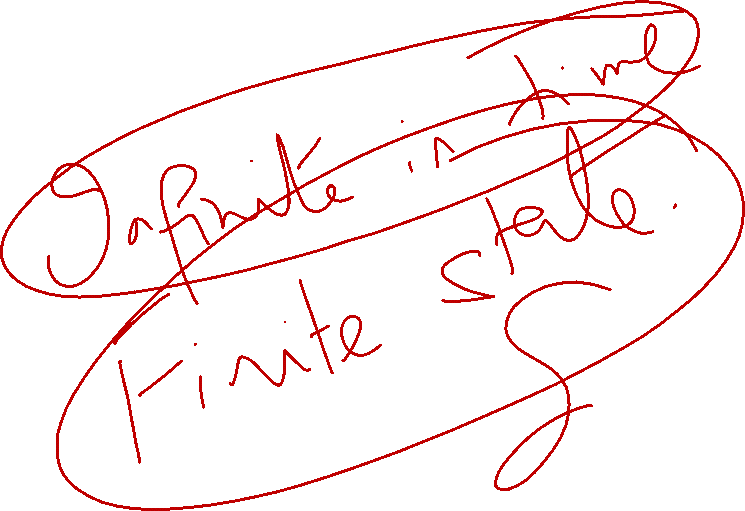 Infinite in time
Finite state.